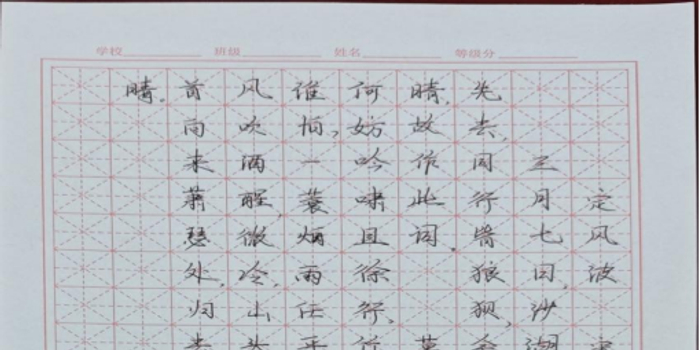 学校 班级 姓名 等级分
定风波
三月七日,沙湖
先去,同行皆狼狈,余
晴,故作此词。莫
何妨吟啸且徐行、竹
谁怕,一蓑烟雨任平
风吹酒醒,微冷,山头
首向来萧瑟处,归去
晴。